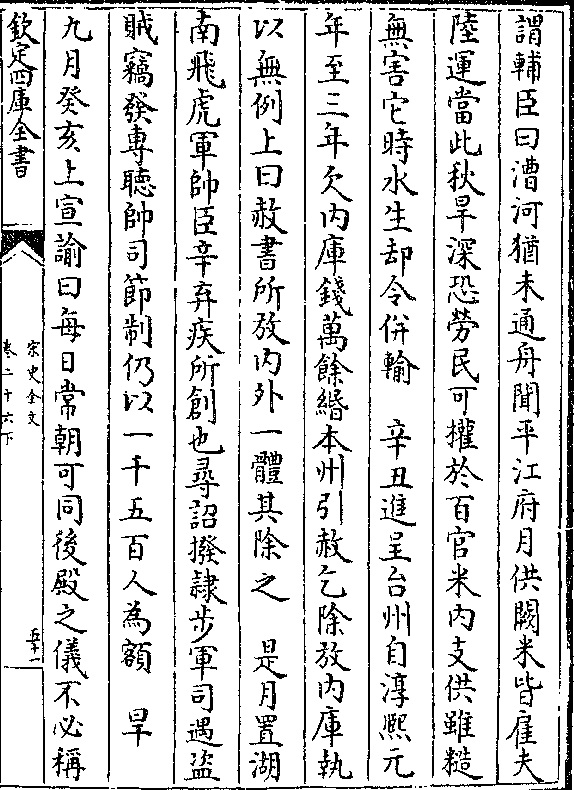 謂輔臣曰漕河猶未通舟聞平江府月供闕米皆雇夫
陸運當此秋旱深恐勞民可㩁於百官米内支供雖糙
無害它時水生却令併輸　辛丑進呈台州自淳熙元
年至三年欠内庫錢萬餘緡本州引赦乞除放内庫執
以無例上曰赦書所放内外一體其除之　是月置湖
南飛虎軍帥臣辛弃疾所創也尋詔撥隷步軍司遇盜
賊竊發專聽帥司節制仍以一千五百人為額　旱
九月癸亥上宣諭曰每日常朝可同後殿之儀不必稱
欽定四庫全書
宋史全文
卷二十六下
五十一